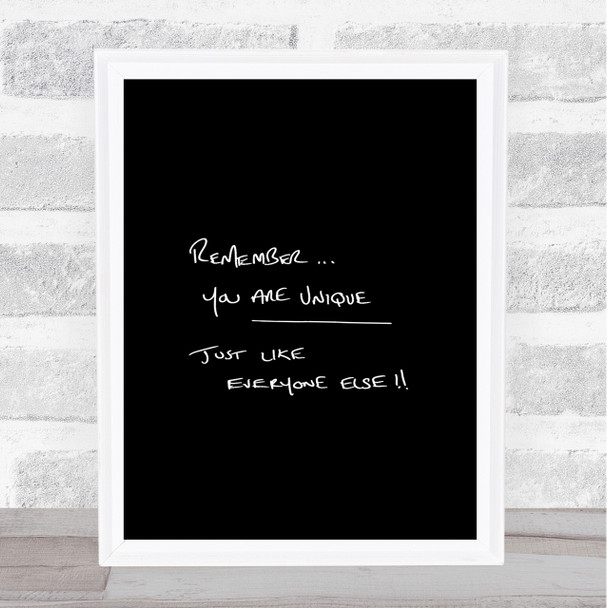 REMEMBER...
YOU ARE UNIQUE
JUST LIKE
EVERYONE ELSE!!